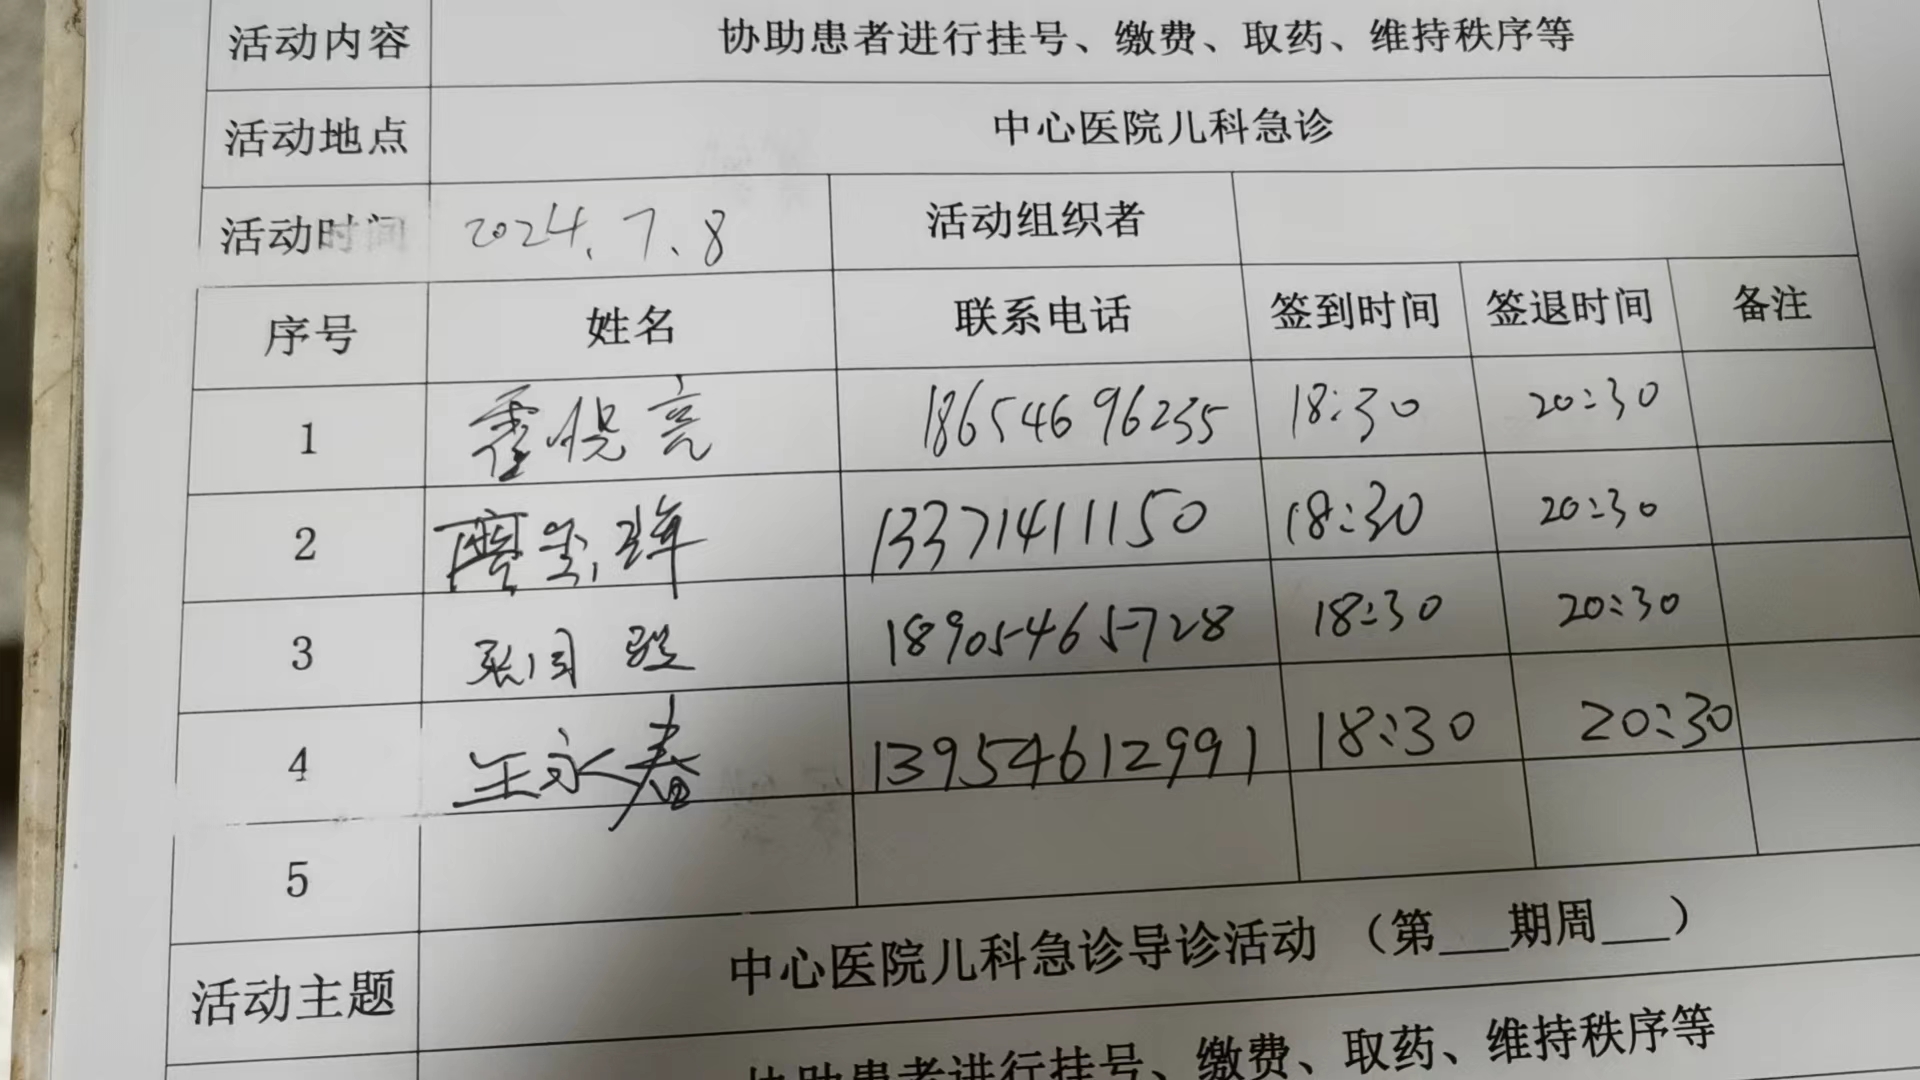 活动内容 协助患者进行挂号、缴费、取药、维持秩序等
活动地点 中心医院儿科急诊
活动时间 2024.7.8 活动组织者
序号 姓名 联系电话 签到时间 签退时间 备注
1 霍悦亮 18654696235 18:30 20:30
2 13371411150 18:30 20:30
3 18905465728 18:30 20:30
4 王永春 13954612991 18:30 20:30
5
活动主题 中心医院儿科急诊导诊活动 (第___期周___)
协助患者进行挂号、缴费、取药、维持秩序等